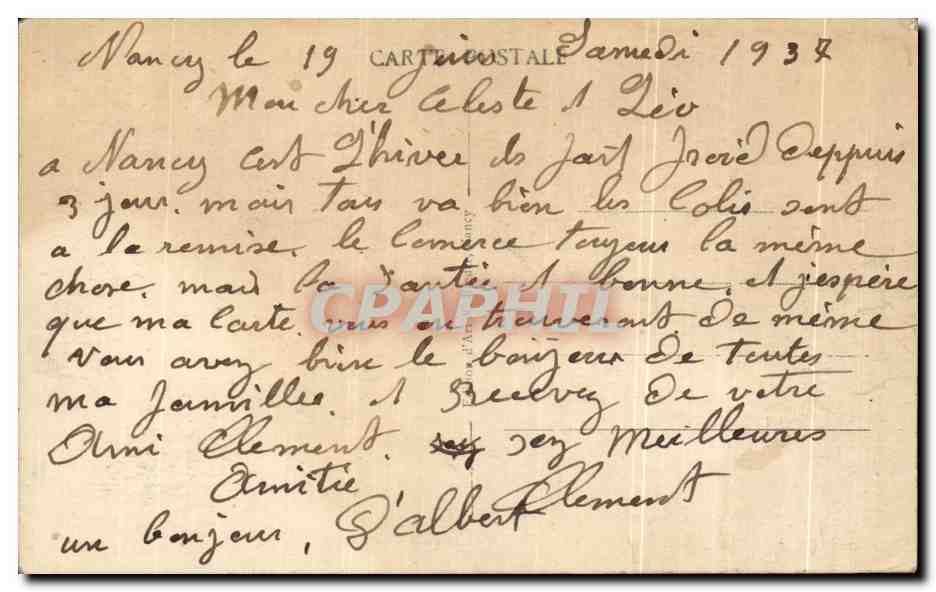 CARTE POSTALE
Nancy le 19 juin Samedi 1937
Mon cher Celeste et Léo
a Nancy cest L'hiver ils fait froid deppuis
3 jour. mais tous va bien les Colis sont
a la remise. le Comerce toujour la même
chose. mais la santée et bonne. et j'espère
que ma Carte. vous en trouveront de même
Vous avez bien le bonjour de toutes
ma famillee. et Recevez de votre
Ami Clement. sez Meilleures
Amitie
un bonjour, D'albert Clement
CPAPHTI